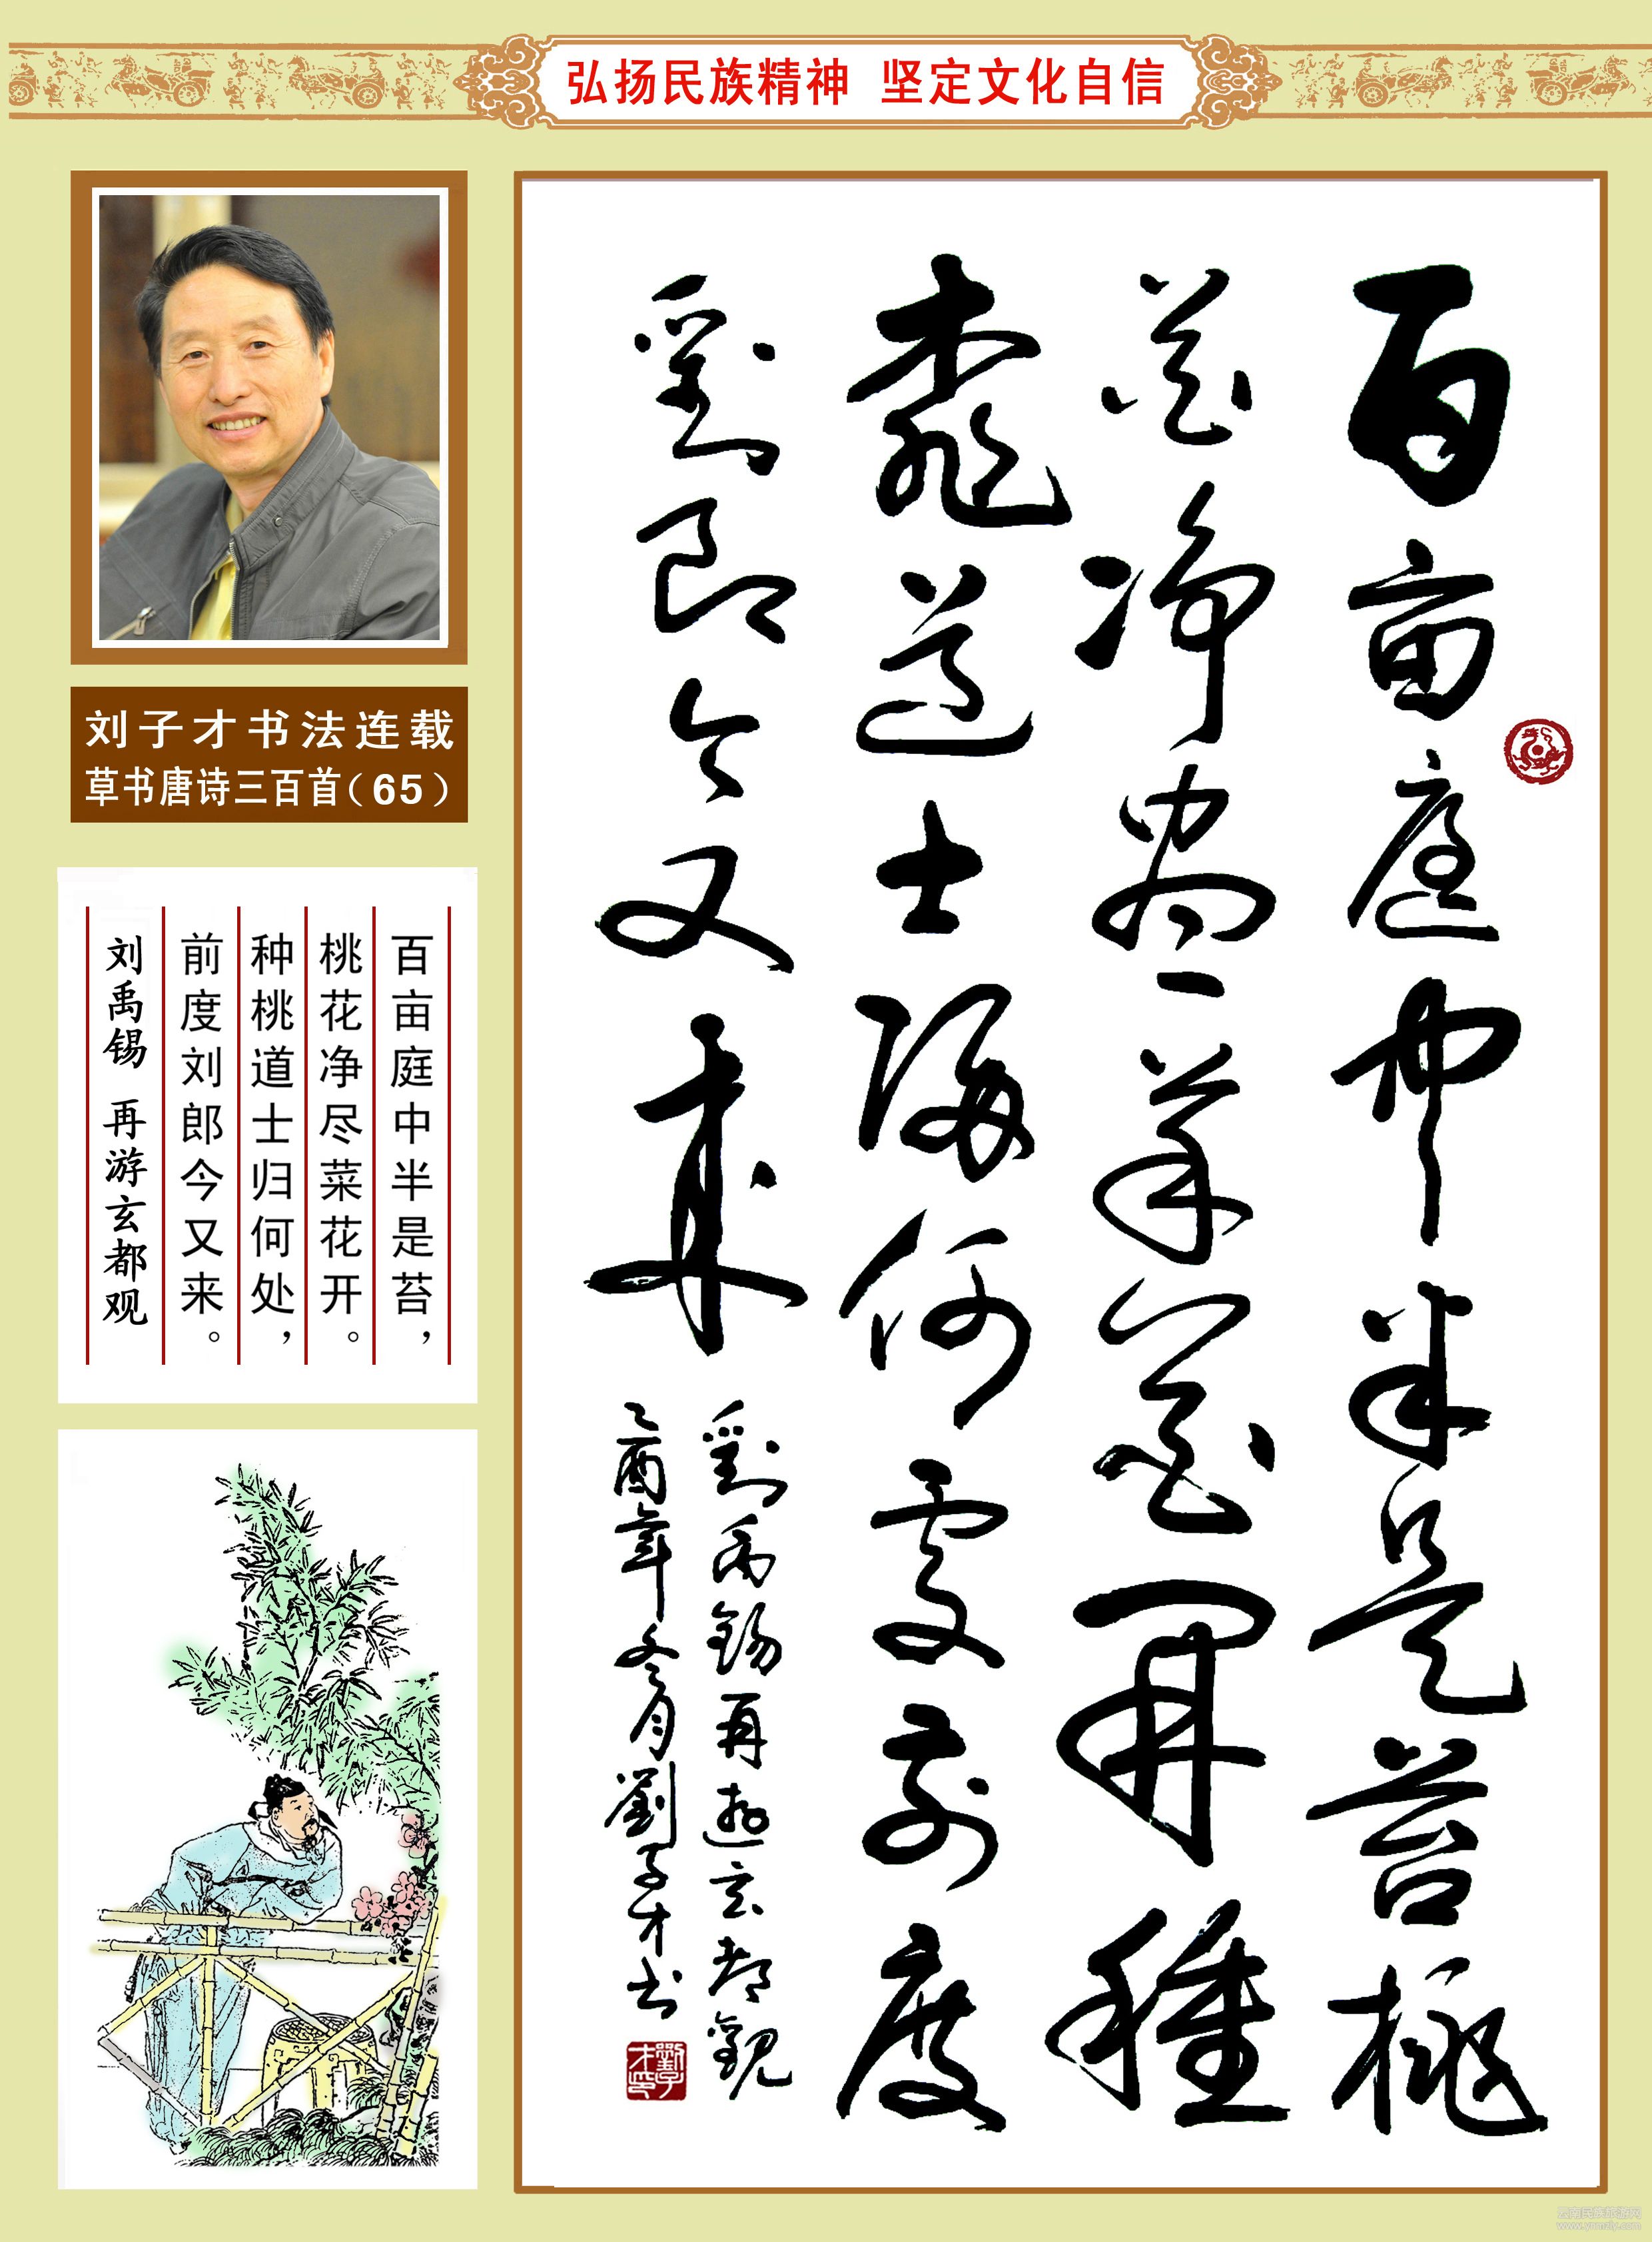 弘扬民族精神 坚定文化自信
刘子才书法连载
草书唐诗三百首（65）
百亩庭中半是苔，
桃花净尽菜花开。
种桃道士归何处，
前度刘郎今又来。
刘禹锡 再游玄都观
百亩庭中半是苔桃
花净盡菜花開種
桃道士歸何處前度
劉郎今又来
劉禹錫再遊玄都觀
乙酉年冬月劉子才书
劉子才印